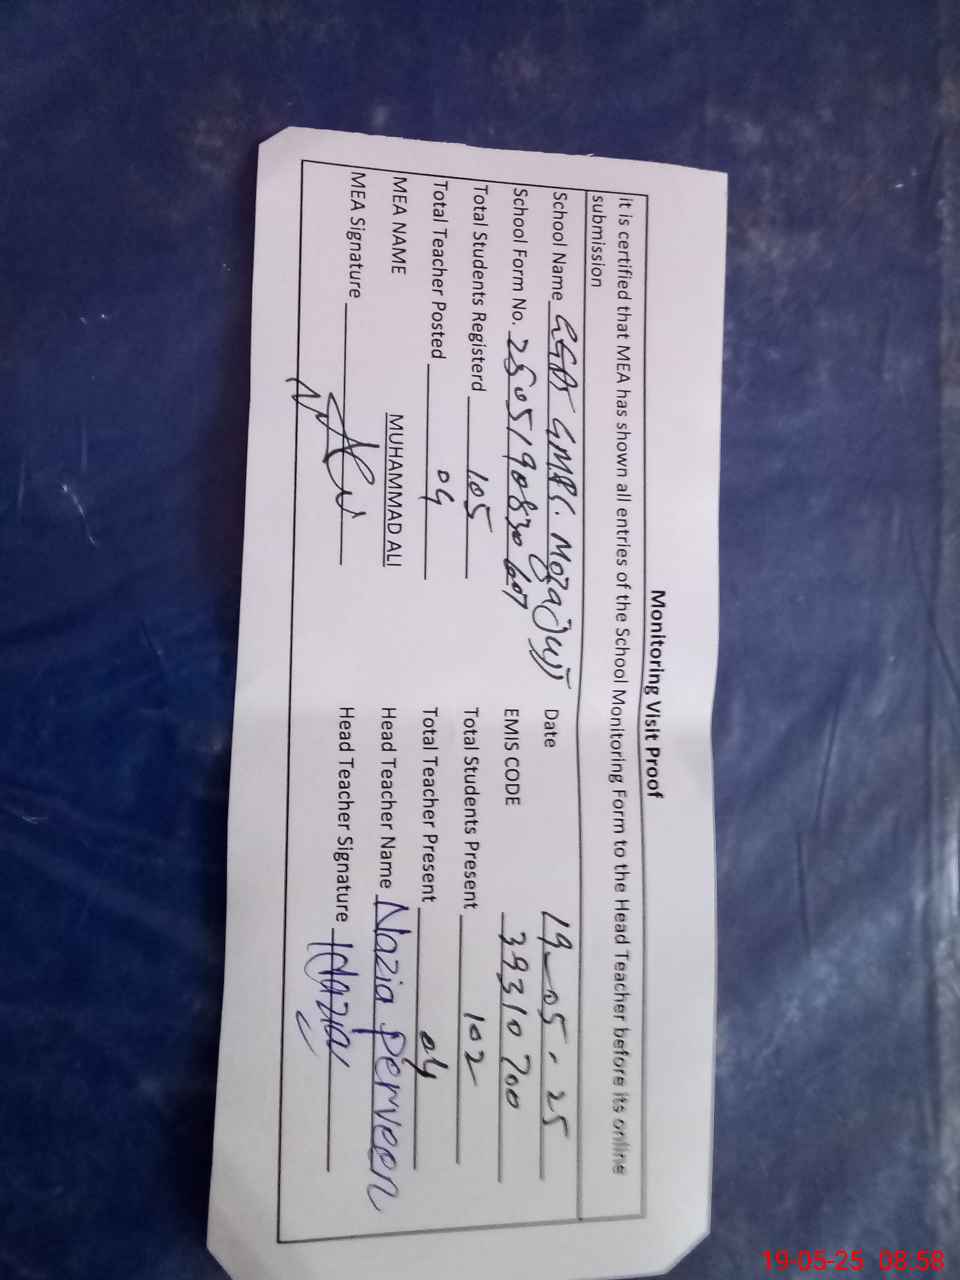 Monitoring Visit Proof
it is certified that MEA has shown all entries of the School Monitoring Form to the Head Teacher before its online
submission
School Name GMPS. Date 19-05-25
School Form No. EMIS CODE 39310700
Total Students Registerd 105 Total Students Present 102
Total Teacher Posted 04 Total Teacher Present 04
MEA NAME MUHAMMAD ALI Head Teacher Name Nazia Perveen
MEA Signature Head Teacher Signature Nazia
19-05-25 08:58